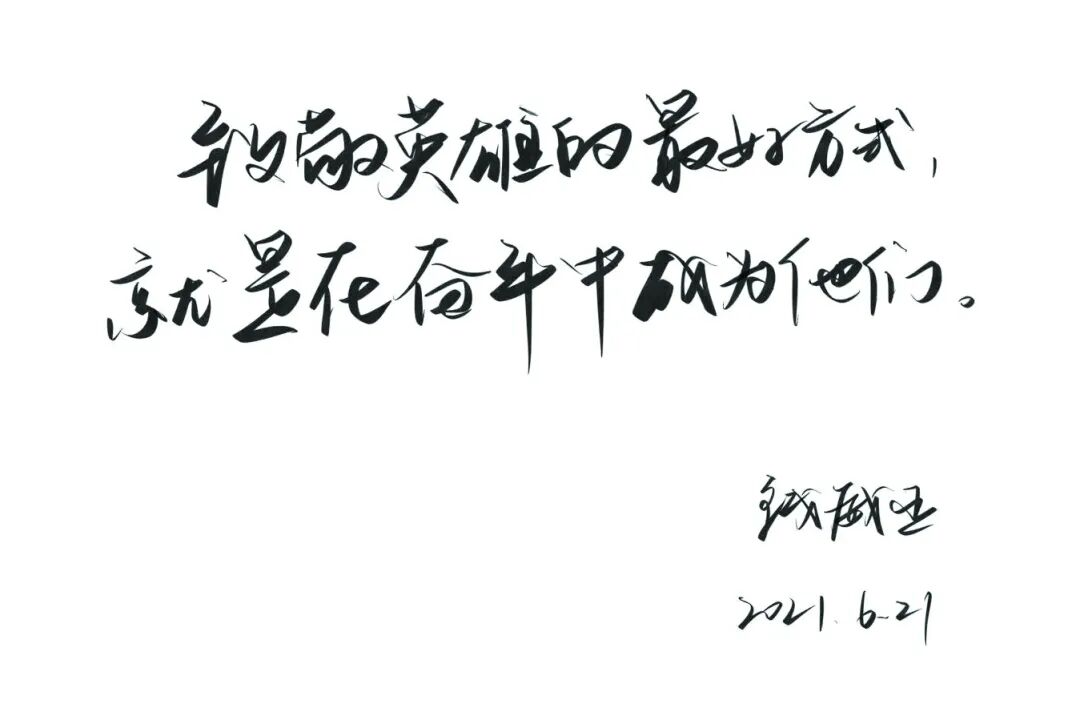 致敬英雄的最好方式，
就是在奋斗中成为他们。
钱威丞
2021.6.21